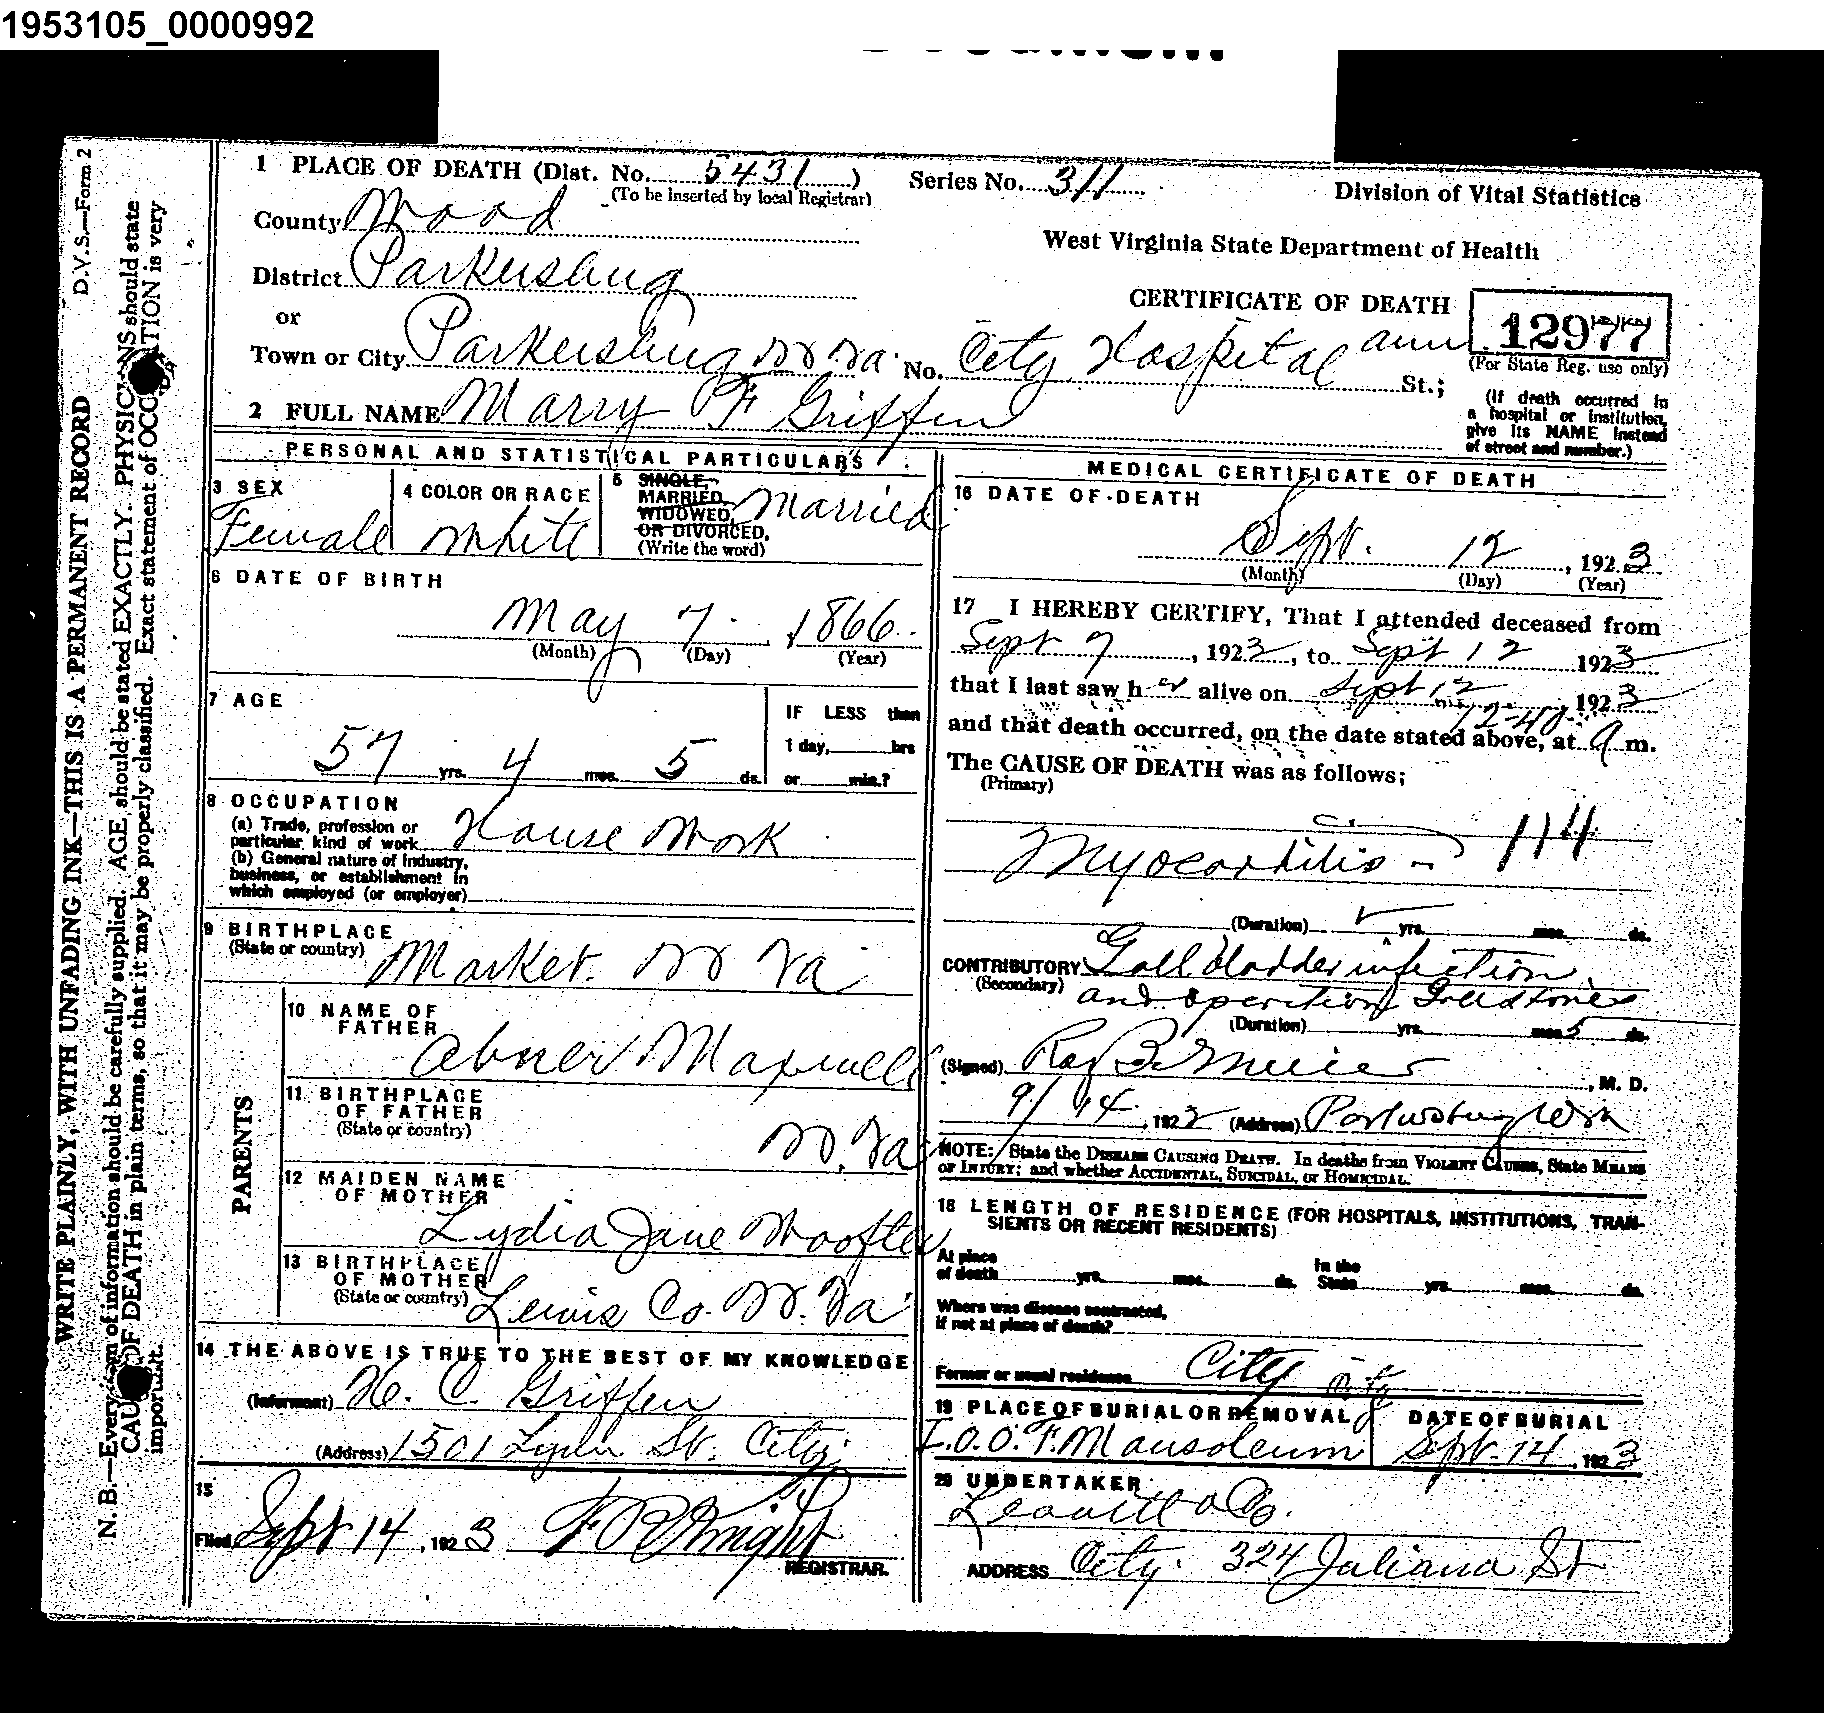 1953105_0000992
D.V.S.—Form 2
WRITE PLAINLY, WITH UNFADING INK—THIS IS A PERMANENT RECORD
N. B.—Every item of information should be carefully supplied. AGE should be stated EXACTLY. PHYSICIANS should state
CAUSE OF DEATH in plain terms, so that it may be properly classified. Exact statement of OCCUPATION is very
important.
1 PLACE OF DEATH (Dist. No. 5431)
(To be inserted by local Registrar)
Series No. 311
Division of Vital Statistics
County Wood
West Virginia State Department of Health
District Parkersburg
CERTIFICATE OF DEATH
12977
(For State Reg. use only)
or
Town or City Parkersburg W Va. No. City Hospital St.;
(If death occurred in
a hospital or institution,
give its NAME instead
of street and number.)
2 FULL NAME Marry F Griffen
PERSONAL AND STATISTICAL PARTICULARS
3 SEX
Female
4 COLOR OR RACE
White
5 SINGLE,
MARRIED,
WIDOWED,
OR DIVORCED,
(Write the word)
Married
6 DATE OF BIRTH
May 7. 1866.
(Month) (Day) (Year)
7 AGE
57 yrs. 4 mos. 5 ds.
IF LESS than
1 day, hrs
or min.?
8 OCCUPATION
(a) Trade, profession or
particular kind of work House Work
(b) General nature of industry,
business, or establishment in
which employed (or employer)
9 BIRTHPLACE
(State or country) Market. W Va
PARENTS
10 NAME OF
FATHER
Abner Maxwell
11 BIRTHPLACE
OF FATHER
(State or country)
W. Va
12 MAIDEN NAME
OF MOTHER
Lydia Jane Woofter
13 BIRTHPLACE
OF MOTHER
(State or country) Lewis Co. W. Va
14 THE ABOVE IS TRUE TO THE BEST OF MY KNOWLEDGE
(Informant) H. C. Griffen
(Address) 1501 St. City
15
Filed Sept 14, 1923 Knight
REGISTRAR.
MEDICAL CERTIFICATE OF DEATH
16 DATE OF DEATH
Sept. 12, 1923
(Month) (Day) (Year)
17 I HEREBY CERTIFY, That I attended deceased from
Sept 7, 1923, to Sept 12 1923
that I last saw her alive on Sept 12, 1923
12-40
and that death occurred, on the date stated above, at a m.
The CAUSE OF DEATH was as follows;
(Primary)
114
Myocarditis
(Duration) yrs. mos. ds.
CONTRIBUTORY Gall bladder infection
(Secondary) and operation Gallstones
(Duration) yrs. mos. 5 ds.
(Signed) , M. D.
9/14, 1923 (Address) Parkersburg W Va
NOTE: State the DISEASE CAUSING DEATH. In deaths from VIOLENT CAUSES, State MEANS
OF INJURY; and whether ACCIDENTAL, SUICIDAL, or HOMICIDAL.
18 LENGTH OF RESIDENCE (FOR HOSPITALS, INSTITUTIONS, TRAN-
SIENTS OR RECENT RESIDENTS)
At place
of death yrs. mos. ds.
In the
State yrs. mos. ds.
Where was disease contracted,
if not at place of death?
Former or usual residence City
19 PLACE OF BURIAL OR REMOVAL
I.O.O.F. Mausoleum
DATE OF BURIAL
Sept. 14, 1923
20 UNDERTAKER
Leavitt Co.
ADDRESS City. 324 Juliana St